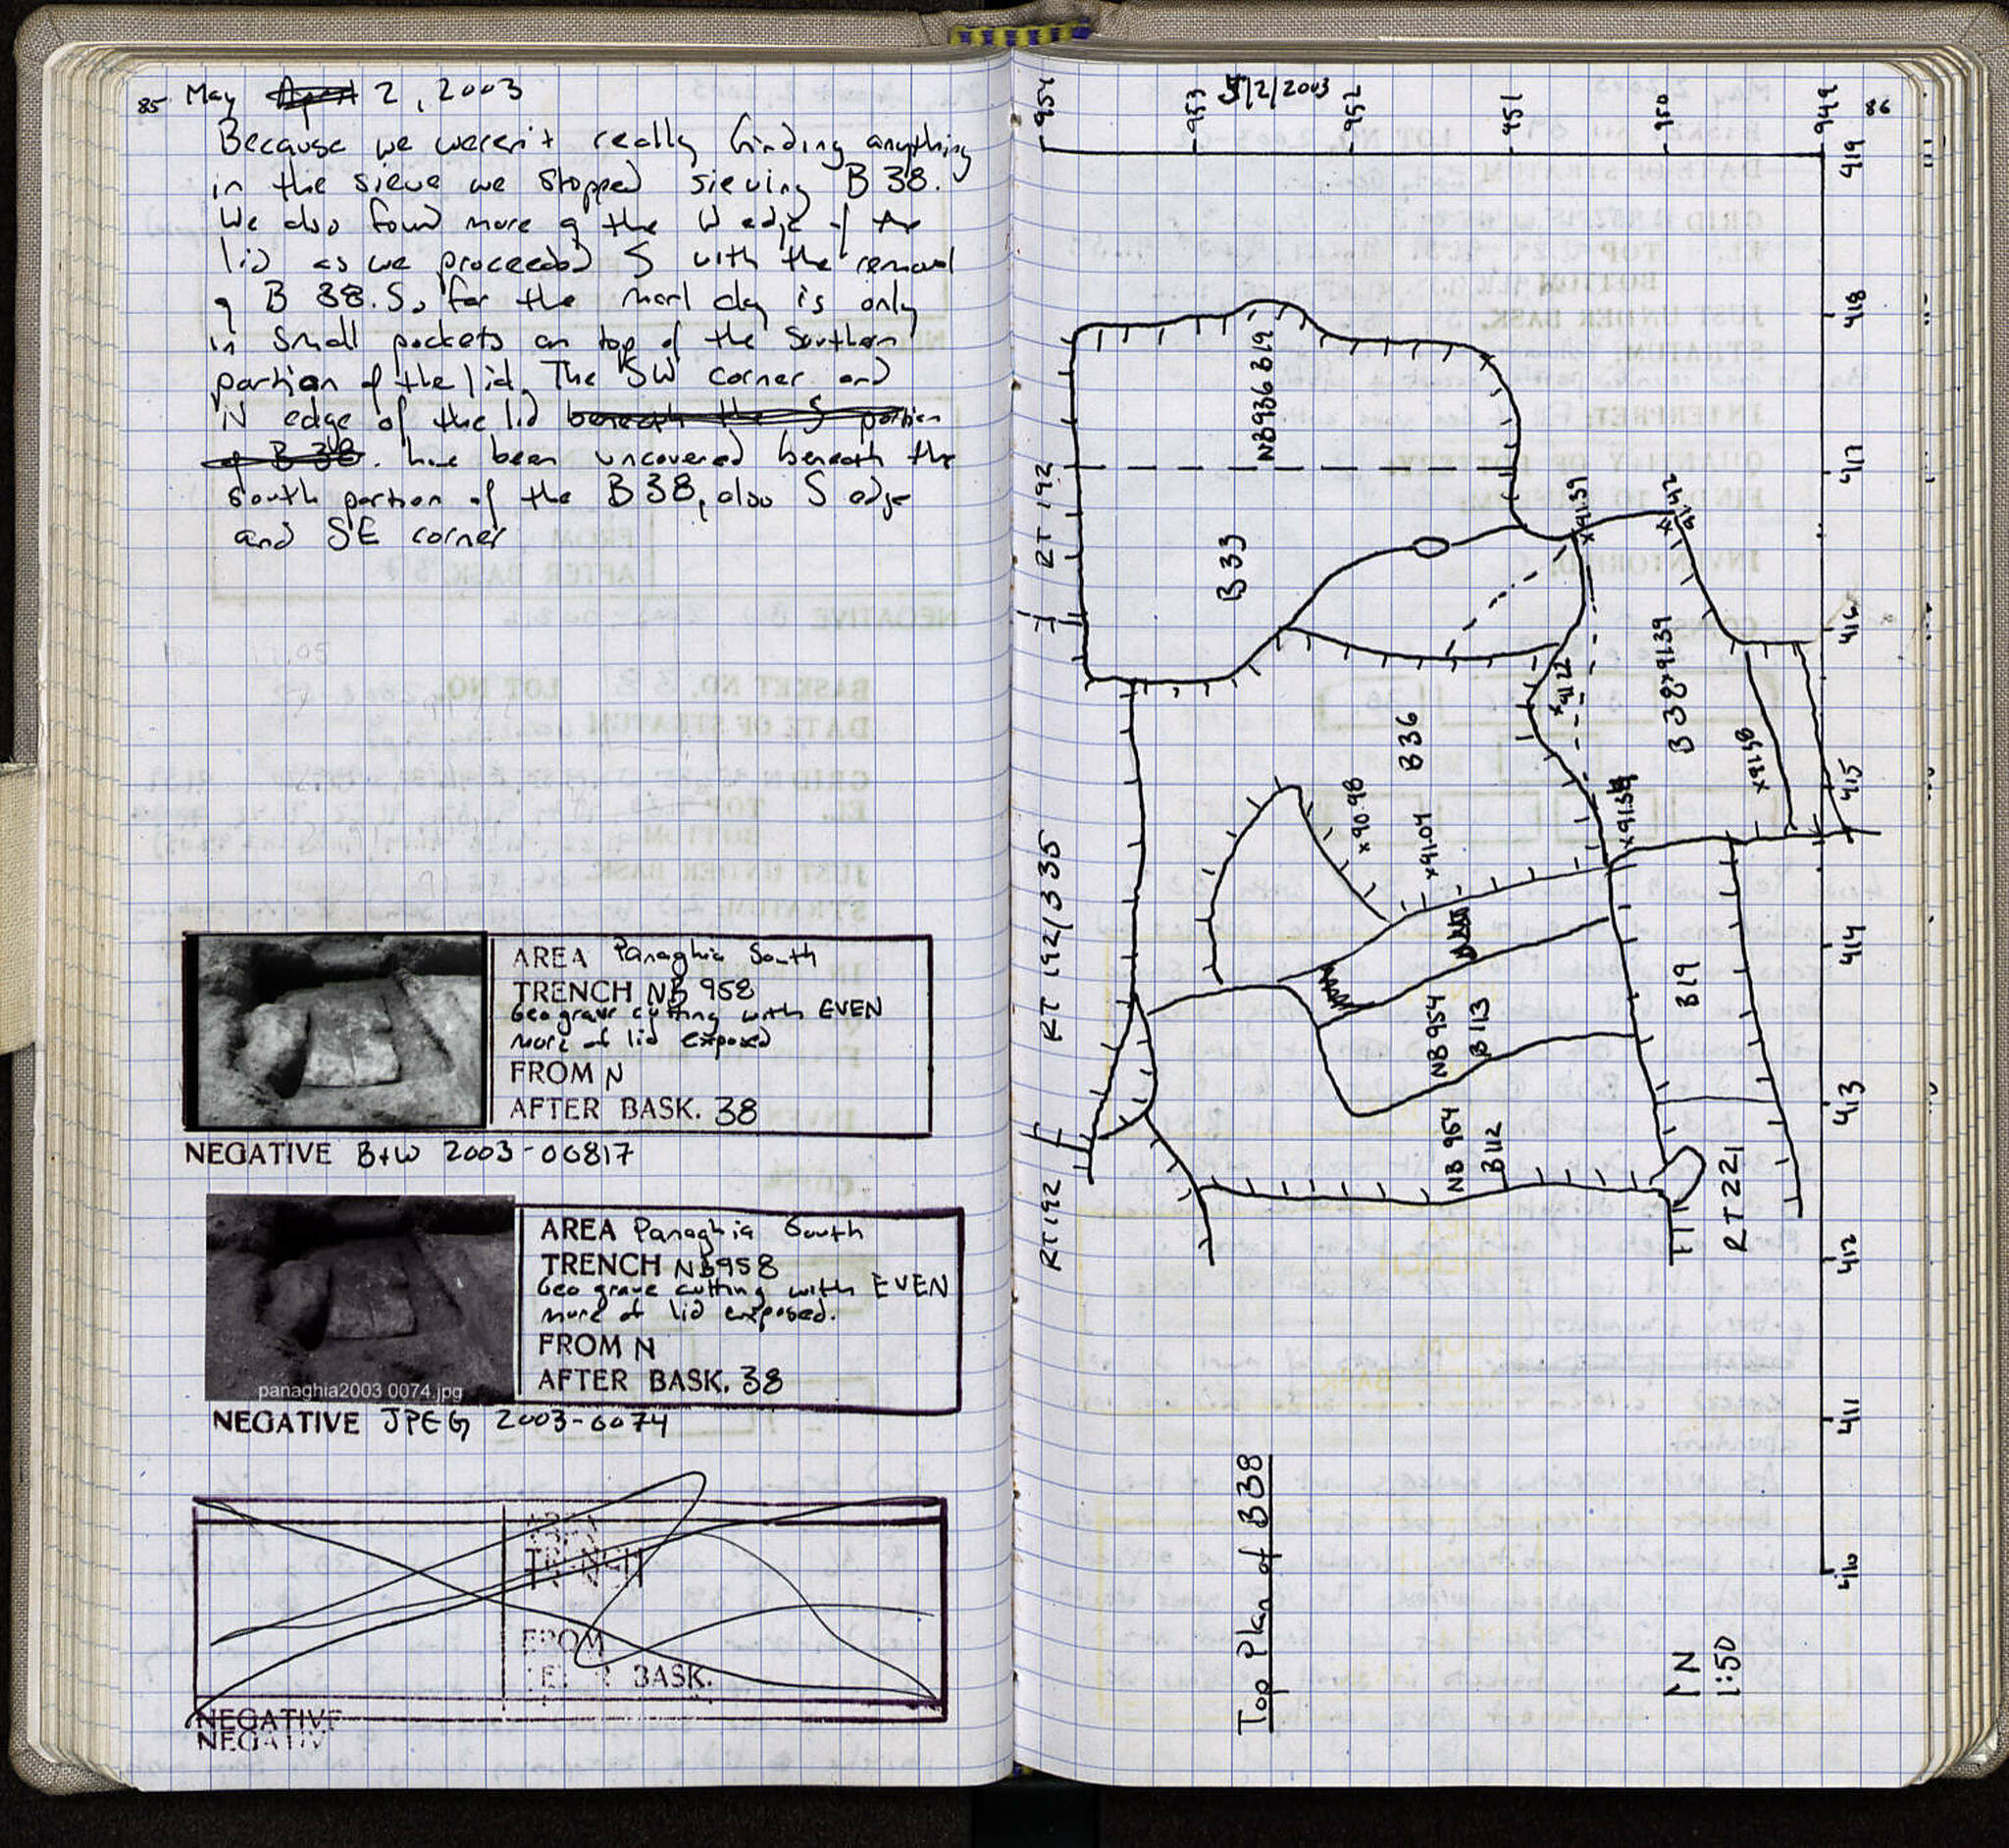 85 May April 2, 2003
Because we weren't really finding anything
in the sieve we stopped sieving B 38.
We also found more of the W edge of the
lid as we proceeded S with the removal
of B 38. So far the marl clay is only
in small pockets on top of the Southern
portion of the lid. The SW corner and
N edge of the lid beneath the S portion
of B 38. have been uncovered beneath the
south portion of the B38, also S edge
and SE corner
AREA Panaghia South
TRENCH NB 958
Geo grave cutting with EVEN
more of lid exposed
FROM N
AFTER BASK. 38
NEGATIVE B+W 2003-00817
AREA Panaghia South
TRENCH NB958
Geo grave cutting with EVEN
more of lid exposed.
FROM N
AFTER BASK. 38
panaghia2003 0074.jpg
NEGATIVE JPEG 2003-0074
TRENCH
FROM
BASK.
NEGATIVE
NEGATIV
5/2/2003
86
954
953
952
951
950
949
419
418
417
416
415
414
413
412
411
410
RT 192
RT 192/335
RT192
NB936 B19
B33
B36
B38
x91.39
x91.42
x91.39
x91.22
x91.38
x90.98
x91.04
B19
NB 954
B113
NB 954
B112
RT221
Top Plan of B38
N
1:50